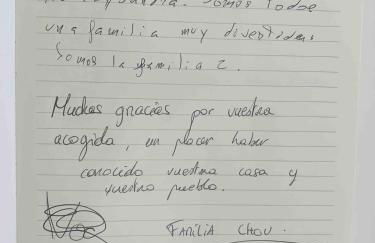 Somos todos
una familia muy divertida.
Somos la familia 2.
Muchas gracias por vuestra
acogida, un placer haber
conocido vuestra casa y
vuestro pueblo.
FAMILIA CHOU.